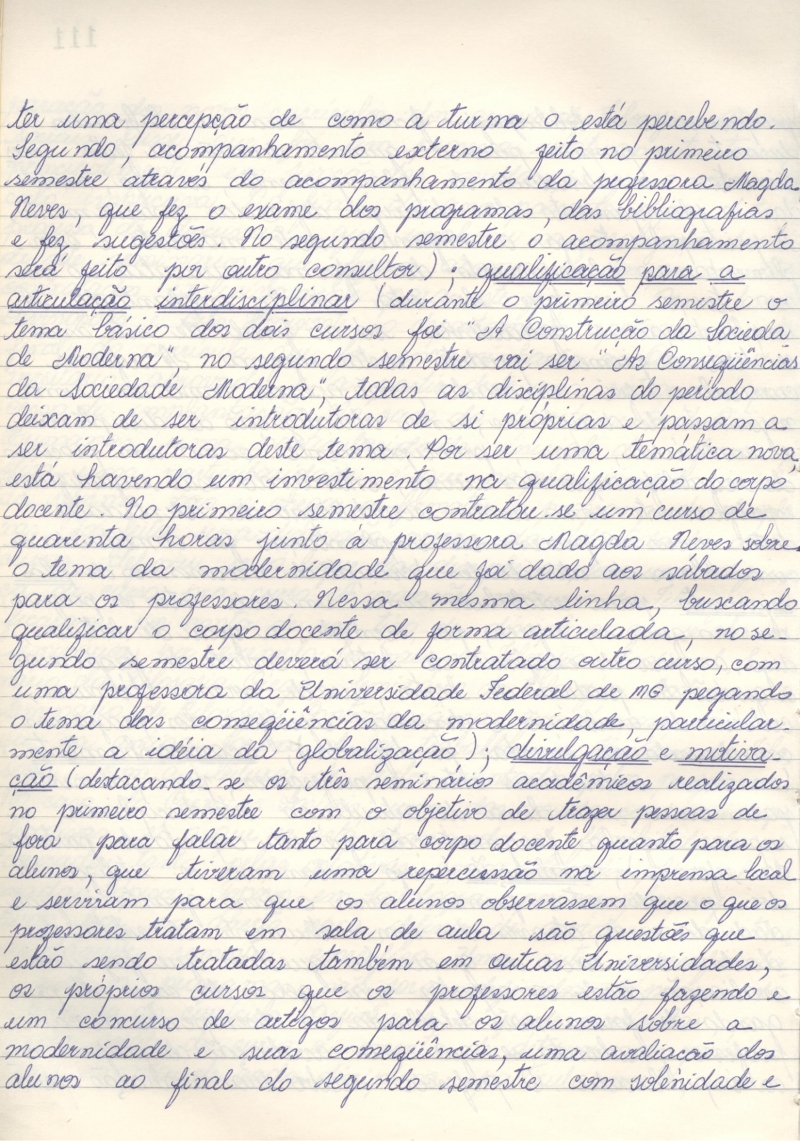 111
ter uma percepção de como a turma o está percebendo.
Segundo, acompanhamento externo feito no primeiro
semestre através do acompanhamento da professora Magda
Neves, que fez o exame dos programas, das bibliografias
e fez sugestões. No segundo semestre o acompanhamento
será feito por outro consultor); qualificação para a
articulação interdisciplinar (durante o primeiro semestre o
tema básico dos dois cursos foi "A Construção da Socieda
de Moderna", no segundo semestre vai ser "As Conseqüências
da Sociedade Moderna", todas as disciplinas do período
deixam de ser introdutoras de si próprias e passam a
ser introdutoras deste tema. Por ser uma temática nova,
está havendo um investimento na qualificação do corpo
docente. No primeiro semestre contratou-se um curso de
quarenta horas junto à professora Magda Neves sobre
o tema da modernidade que foi dado aos sábados
para os professores. Nessa mesma linha, buscando
qualificar o corpo docente de forma articulada, no se-
gundo semestre deverá ser contratado outro curso, com
uma professora da Universidade Federal de MG pegando
o tema das conseqüências da modernidade, particular-
mente a idéia da globalização); divulgação e motiva-
ção (destacando-se os três seminários acadêmicos realizados
no primeiro semestre com o objetivo de trazer pessoas de
fora para falar tanto para corpo docente quanto para os
alunos, que tiveram uma repercussão na imprensa local
e serviram para que os alunos observassem que o que os
professores tratam em sala de aula são questões que
estão sendo tratadas também em outras Universidades,
os próprios cursos que os professores estão fazendo e
um concurso de artigos para os alunos sobre a
modernidade e suas conseqüências, uma avaliação dos
alunos ao final do segundo semestre com solenidade e